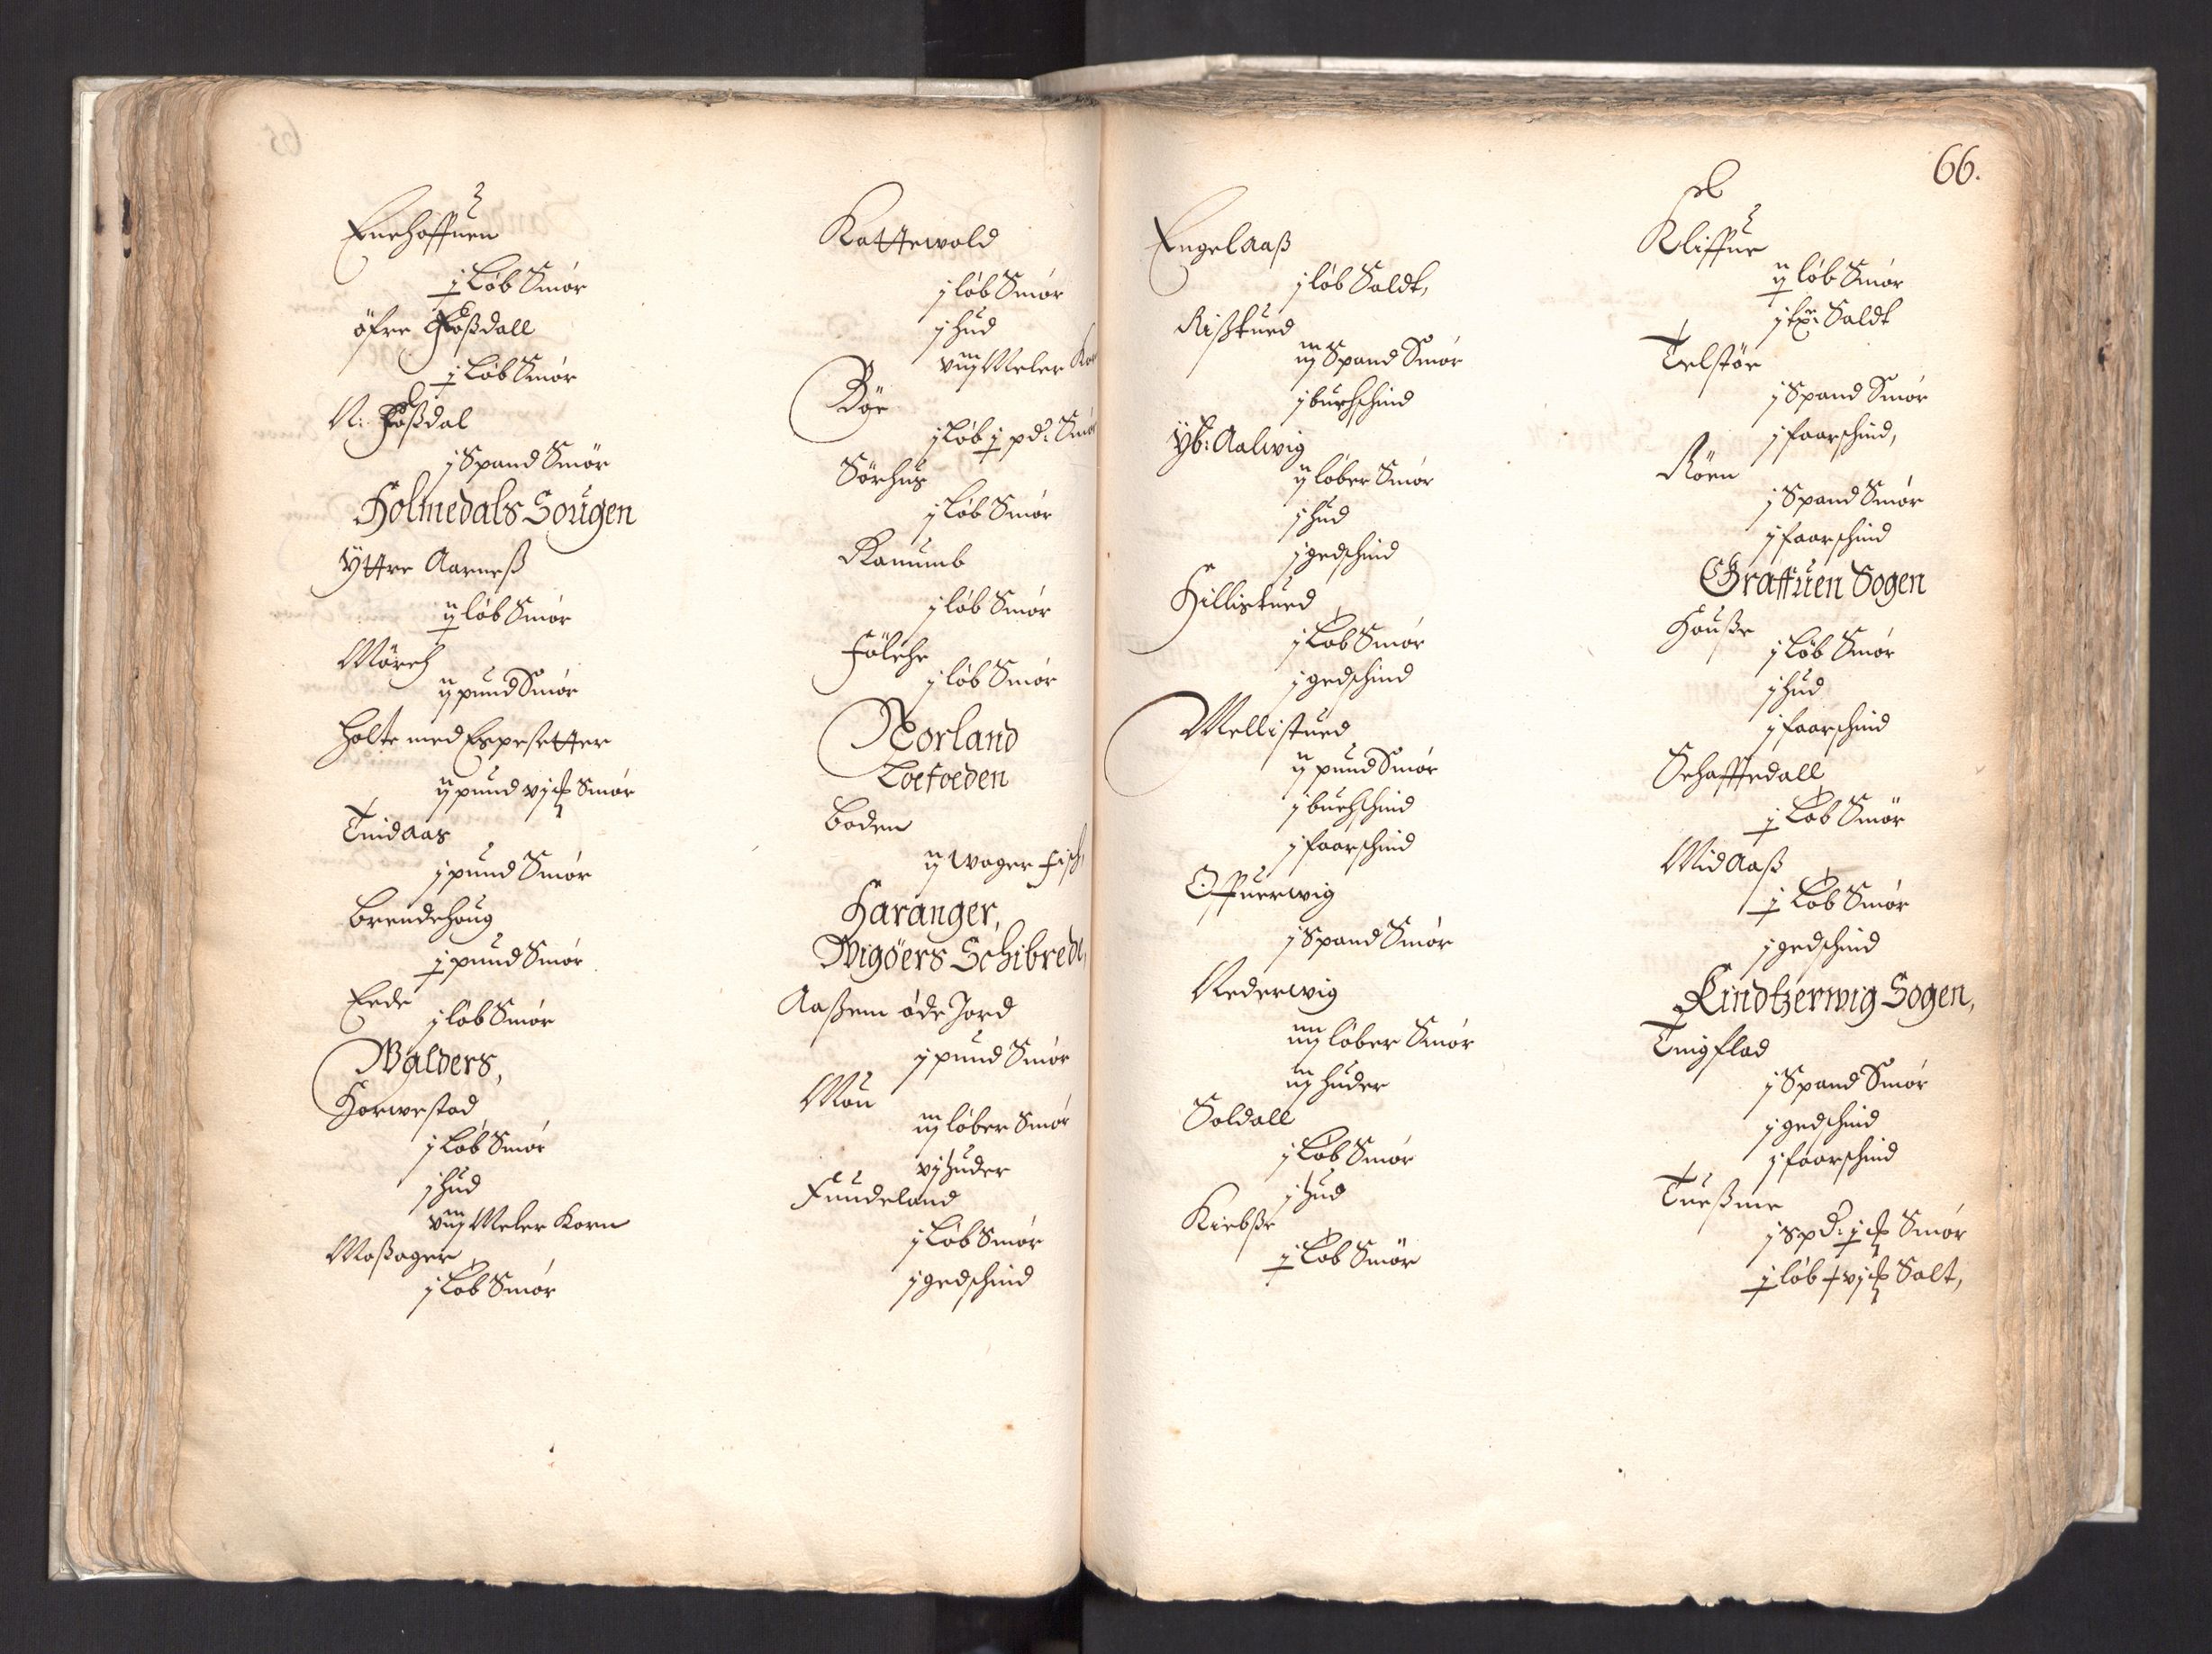 Enehoffuen
j Løb Smör
öfre Foßdall
j Løb Smör
N: Foßdal
j Spand Smör
Holmedals Sougen
Yttre Aarneß
ij løb Smör
Mörch
ij pund Smör
Holte med Espesetter
ij pund vj Smör
Tuidaas
j pund Smör
Brendehoug
j pund Smör
Eede
j løb Smör
Walders,
Horwestad
j Løb Smör
j hud
viij Meler Korn
Moßager
j Løb Smör
Kattewold
j løb Smör
j hud
viij Meler
Böe
j Løb j pd: Smör
Sörhus
j Løb Smör
Ranumb
j løb Smör
Fölche
j løb Smör
Norland
Loefoeden
Boden
ij Wager Fisch,
Haranger,
Wigöers Schibrede,
Aaßem öde Jord
j pund Smör
Mou
iij løber Smör
vj huder
Fundeland
j Løb Smör
j gedschind
66.
Engelaaß
j løb Saldt,
Rißtued
iij Spand Smör
j buchschind
Yt: Aalwig
ij løber Smör
j hud
j gedschind
Hillistued
j Løb Smör
j gedschind
Mellistued
ij pund Smör
j buchschind
j faarschind
Offuerwig
j Spand Smör
Nederwig
iiij løber Smör
iij huder
Soldall
j Løb Smör
j hud
Kiebße
j Løb Smör
Kliffue
ij løb Smör
j Saldt
Telstöe
j Spand Smör
j faarschind,
Röen
j Spand Smör
j faarschind
Graffuen Sogen
Houße
j Løb Smör
j hud
j faarschind
Schafftedall
j Løb Smör
Midaaß
j Løb Smör
j gedschind
Kindtzerwig Sogen,
Tuigflad
j Spand Smör
j gedschind
j faarschind
Tueßme
j Spd: j Smör
j løb + vj Salt,